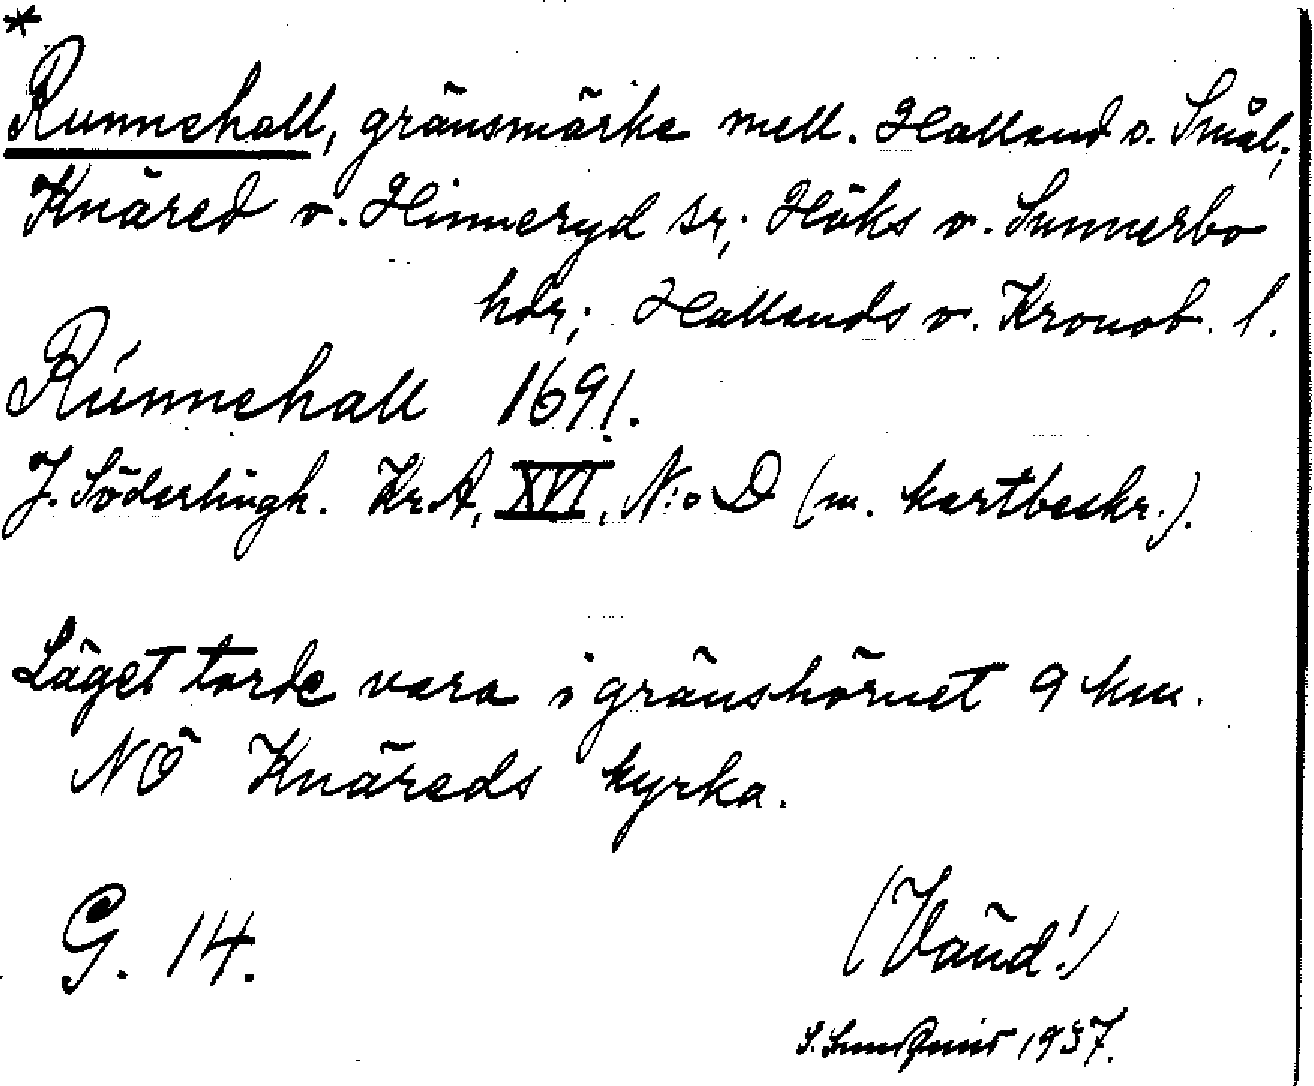 *
Runnehall, gränsmärke mell. Halland o. Smål.;
Knäred o. Hinneryd sr; Höks o. Sunnerbo
hdr; Hallands o. Kronob. l.
Rúnnehall 1691.
J. Söderlingh. Kr.A, XVI, N:o D (m. kartbeskr.).
Läget torde vara i gränshörnet 9 km.
NÖ Knäreds kyrka.
G. 14.
(Vänd!)
S. Sundquist 1937.